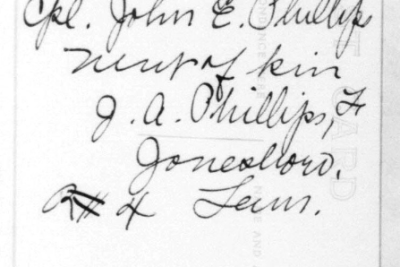 Cpl. John E. Phillips
Next of kin
J. A. Phillips, F
Jonesboro.
R# 4 Tenn.